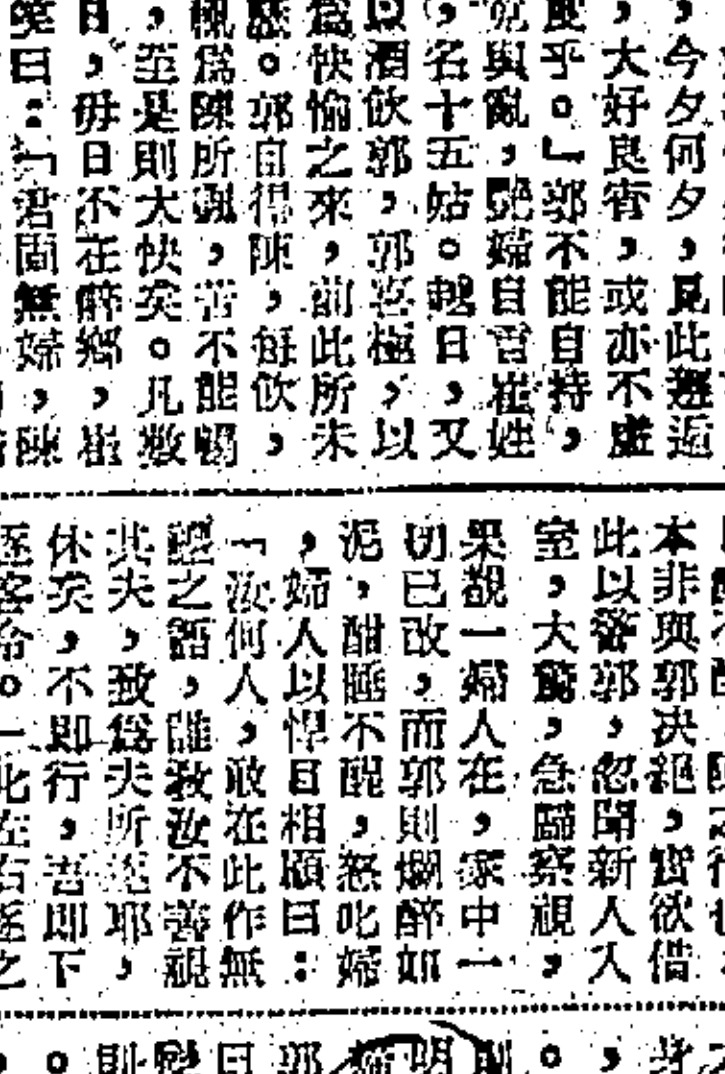 ，今夕何夕，見此邂逅
，大好良宵，或亦不虛
度乎。」郭不能自持，
與亂，艷婦自言崔姓
，名十五姑。越日，又
以酒飲郭，郭喜極，以
爲快愉之來，前此所未
。郭自得陳，每飲，
輒爲陳所嬲，苦不能暢
，至是則大快矣。凡數
日，毋日不在醉鄉，崔
笑曰：「君固無婦，陳
本非與郭决絕，實欲借
此以警郭，忽聞新人入
室，大驚，急歸察視，
果覩一婦人在，家中一
切已改，而郭則爛醉如
泥，酣睡不醒，怒叱婦
，婦人以悍目相顧曰：
「汝何人，敢在此作無
禮之語，誰教汝不善視
其夫，致爲夫所逐耶，
休矣，不即行，吾即下
逐客令。」此左右逐之